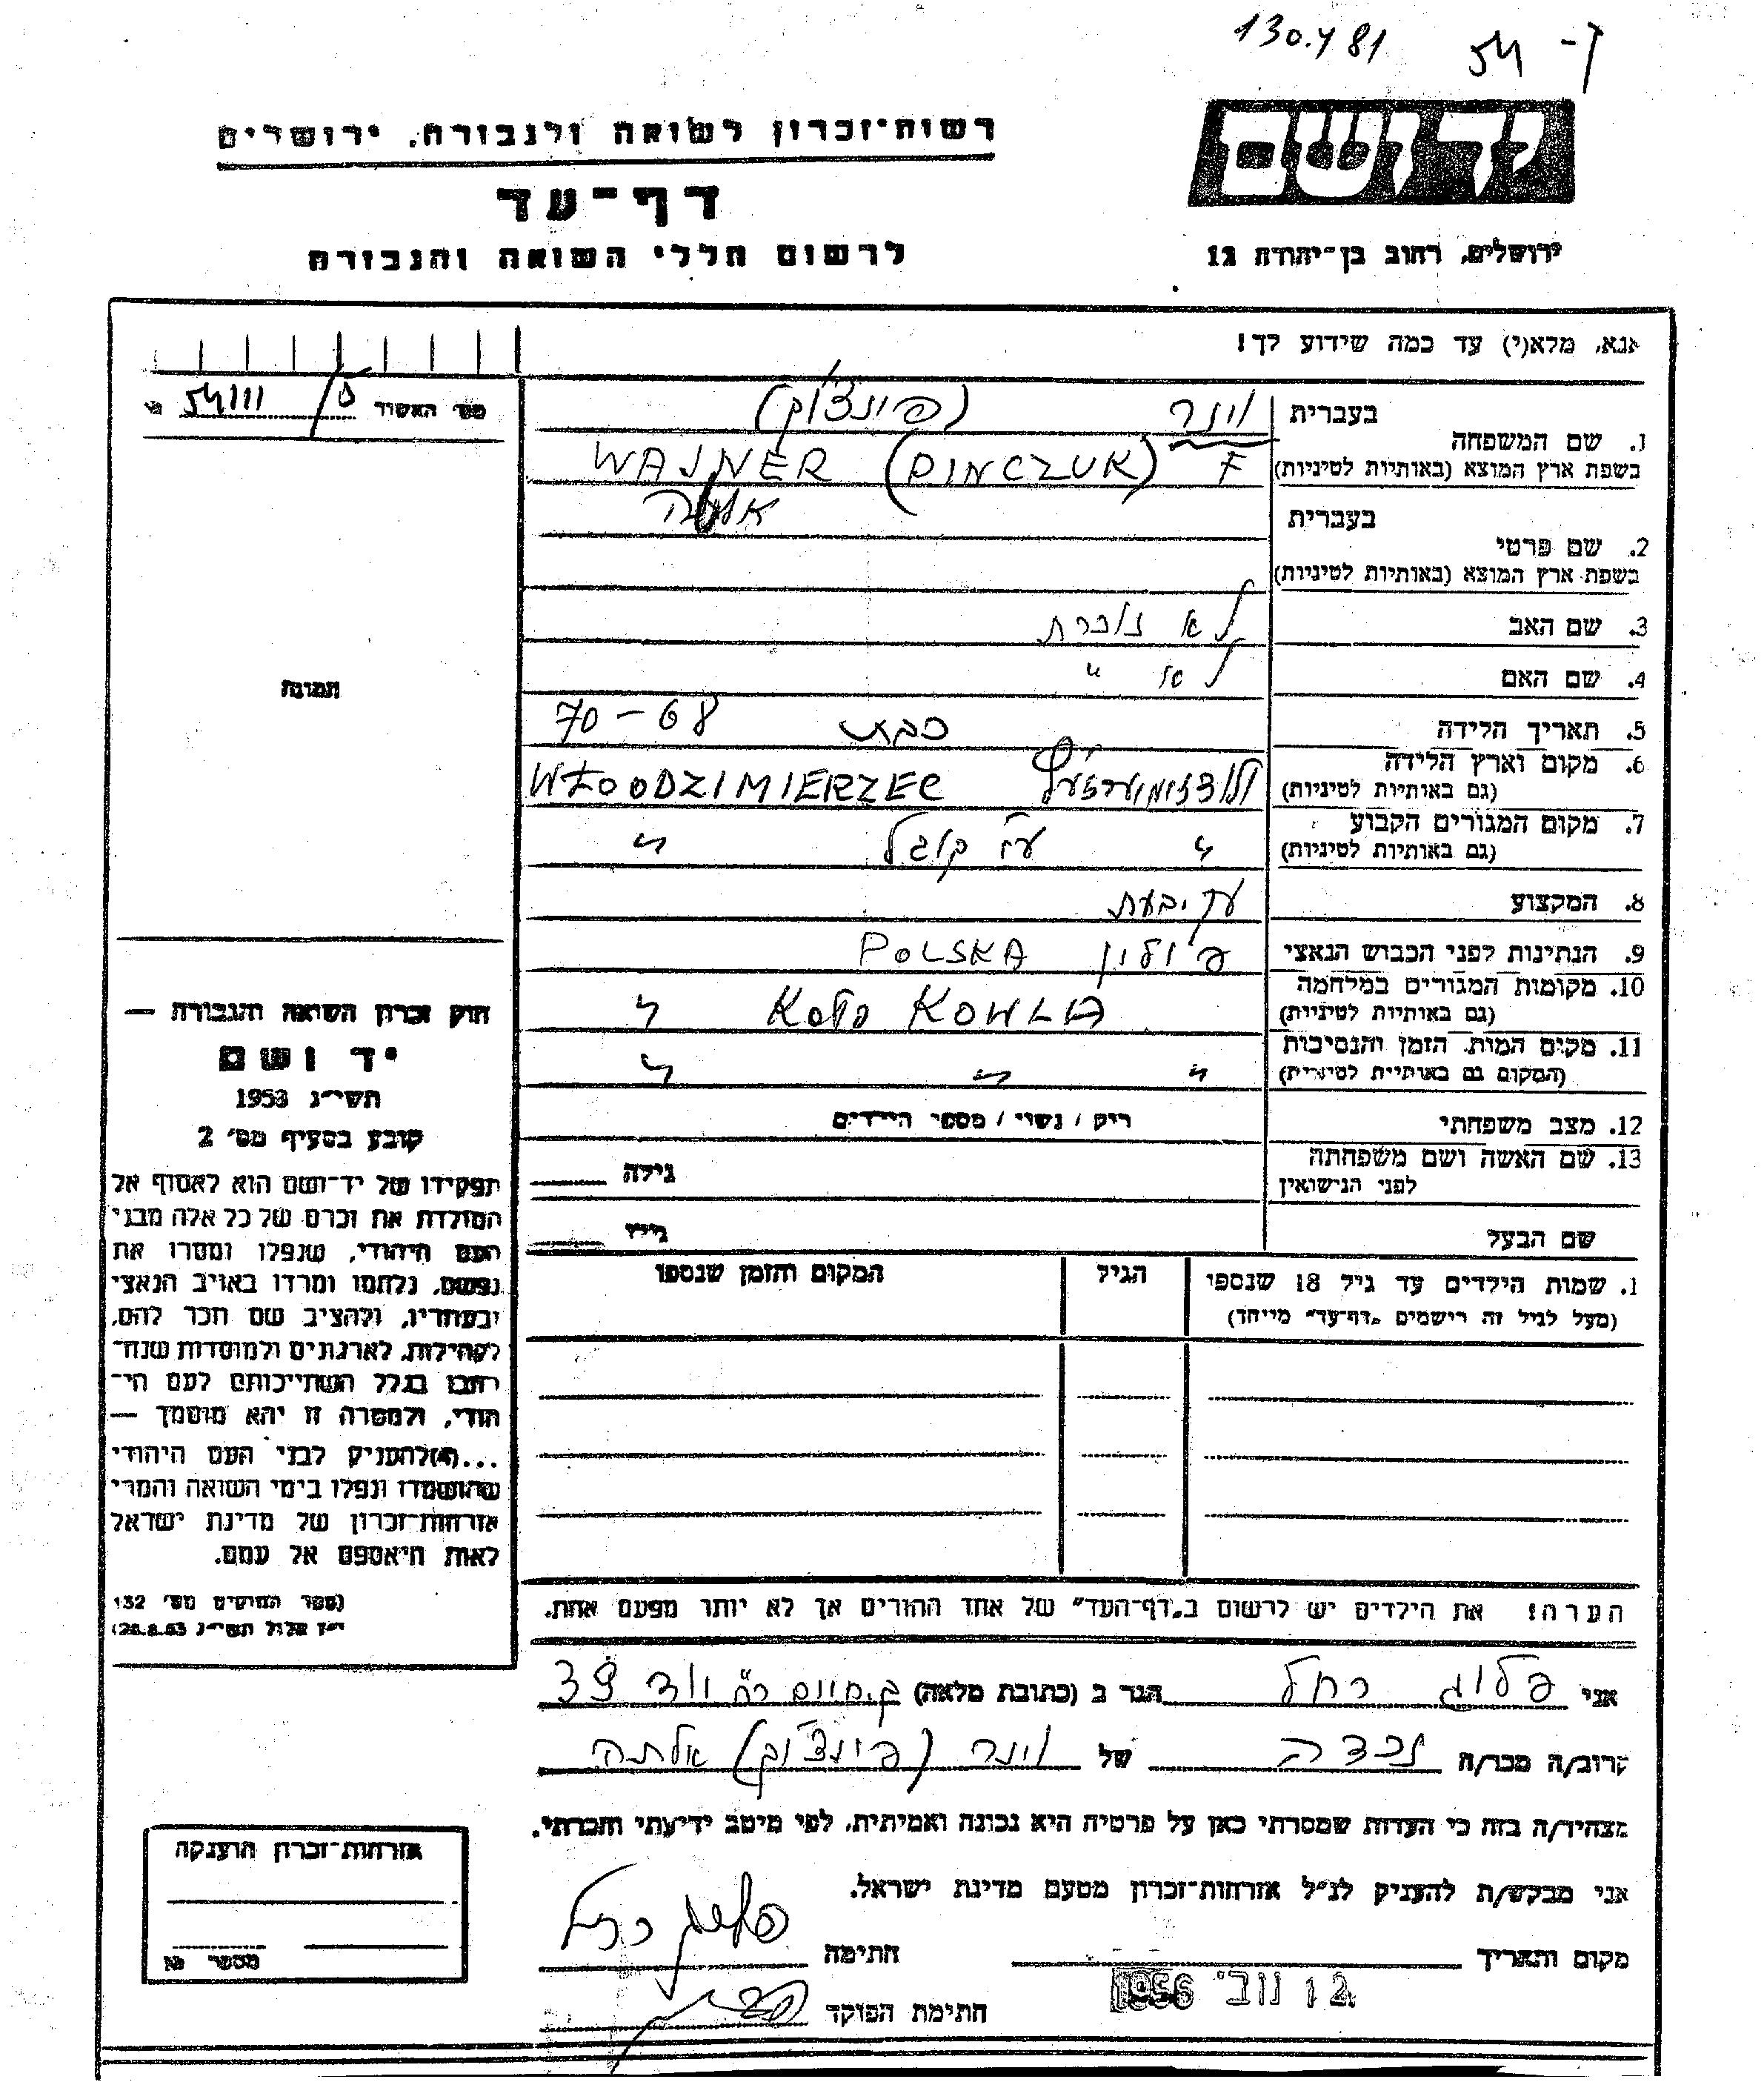 130.481 54 -ך
יד ושם
רשות-זכרון לשואה ולגבורה, ירושלים
דף-עד
לרשום חללי השואה והגבורה
ירושלים, רחוב בן-יהודה 12
אנא, מלא(י) עד כמה שידוע לך!
מס' האשור 54111
בעברית וינר (פינצ'וק)
1. שם המשפחה
בשפת ארץ המוצא (באותיות לטיניות) F WAJNER (PINCZUK)
בעברית
2. שם פרטי
בשפת ארץ המוצא (באותיות לטיניות)
3. שם האב לא זוכרת
4. שם האם לא "
תמונה
5. תאריך הלידה כבת 68-70
6. מקום וארץ הלידה WŁOODZIMIERZEC
(גם באותיות לטיניות)
7. מקום המגורים הקבוע " ע"י קובל "
(גם באותיות לטיניות)
8. המקצוע עקיבעת
9. הנתינות לפני הכבוש הנאצי פולין POLSKA
10. מקומות המגורים במלחמה KOŁO KOWLA "
(גם באותיות לטיניות)
11. מקום המות, הזמן והנסיבות " " "
(המקום גם באותיות לטיניות)
12. מצב משפחתי רוק / נשוי / מספר הילדים
13. שם האשה ושם משפחתה
לפני הנישואין גילה
שם הבעל גילו
1. שמות הילדים עד גיל 18 שנספו הגיל המקום והזמן שנספו
(מעל לגיל זה רישמים "דף-עד" מייחד)
חוק זכרון השואה והגבורה —
יד ושם
תשי"ג 1953
קובע בסעיף מס' 2
תפקידו של יד-ושם הוא לאסוף אל
המולדת את זכרם של כל אלה מבני
העם היהודי, שנפלו ומסרו את
נפשם, נלחמו ומרדו באויב הנאצי
ובעוזריו, ולהציב שם וזכר להם,
לקהילות, לארגונים ולמוסדות שנח-
רבו בגלל השתייכותם לעם הי-
הודי, ולמטרה זו יהא מוסמך —
...(ד)להעניק לבני העם היהודי
שהושמדו ונפלו בימי השואה והמרי
אזרחות-זכרון של מדינת ישראל
לאות היאספם אל עמם.
(ספר החוקים מס' 132
י"ז אלול תשי"ג 28.8.53)
הערה! את הילדים יש לרשום ב"דף-העד" של אחד ההורים אך לא יותר מפעם אחת.
אני פלוג רחל הגר ב (כתובת מלאה) ק.חיים רח'
קרוב/ה מכר/ה נכדה של וינר (פינצ'וק) אלתה
מצהיר/ה בזה כי העדות שמסרתי כאן על פרטיה היא נכונה ואמיתית, לפי מיטב ידיעתי והכרתי.
אני מבקש/ת להעניק לנ"ל אזרחות-זכרון מטעם מדינת ישראל.
מקום ותאריך 12 נוב' 1956 חתימה
חתימת הפוקד
אזרחות-זכרון הוענקה
מספר